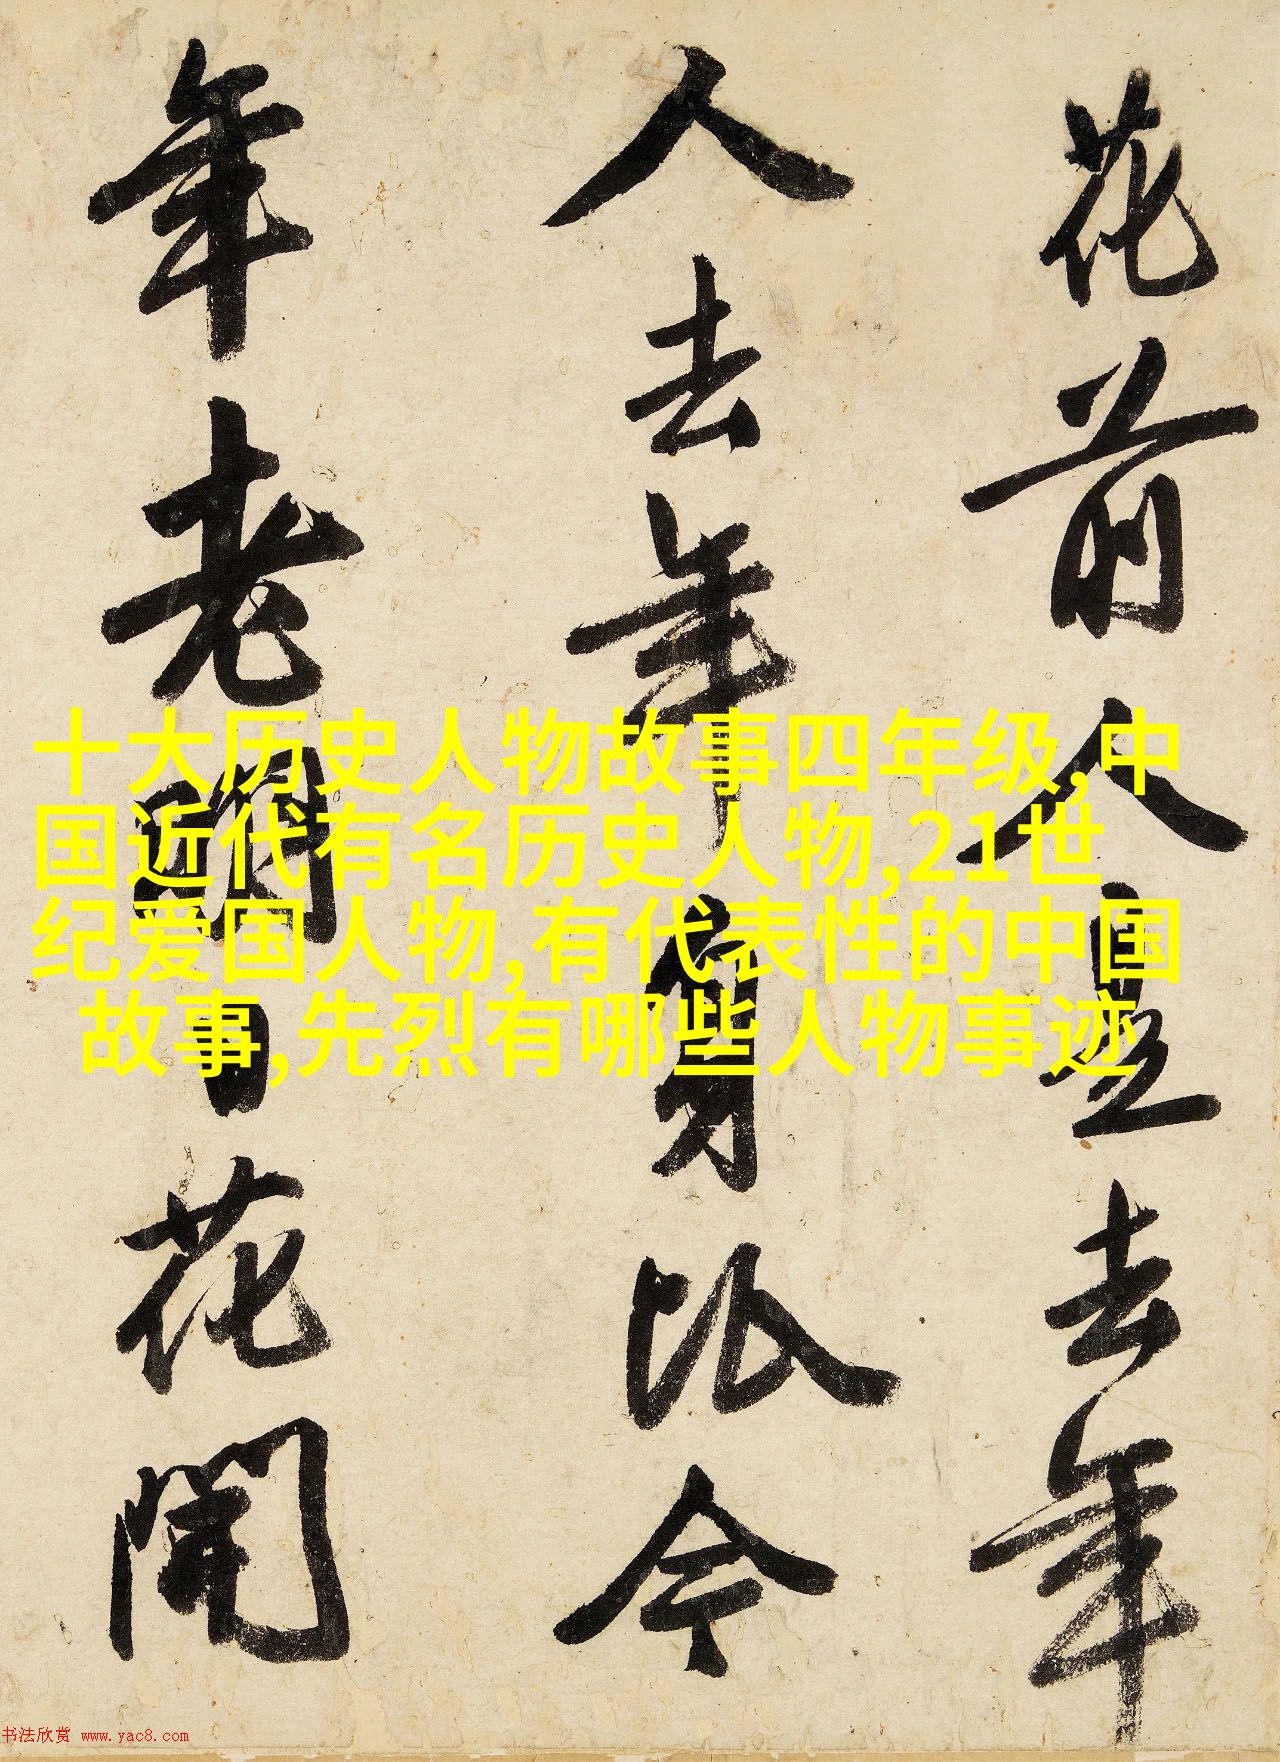 花前人是去年
人去年比今
年老日花開
十大历史人物故事四年级,中
国近代有名历史人物,21世
纪爱国人物,有代表性的中国
故事,先烈有哪些人物事迹
书法欣赏 www.yac8.com